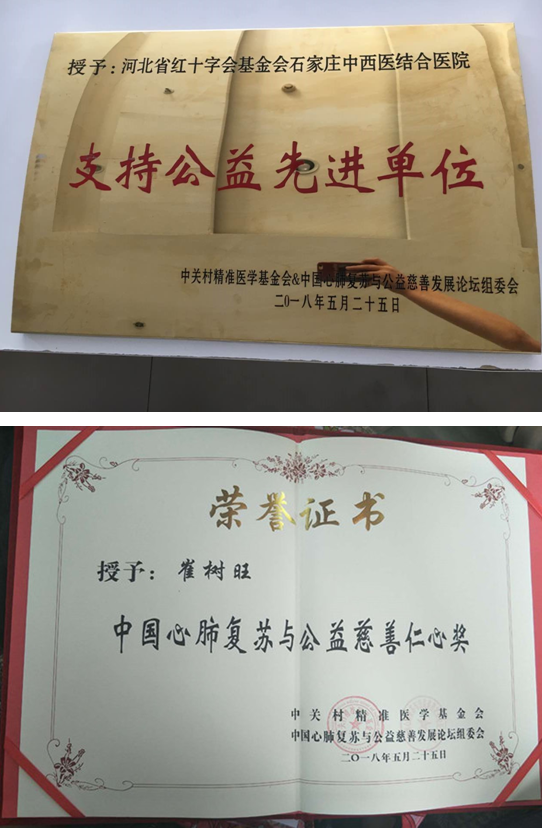 授予：河北省红十字会基金会石家庄中西医结合医院
支持公益先进单位
中关村精准医学基金会&中国心肺复苏与公益慈善发展论坛组委会
二〇一八年五月二十五日
荣誉证书
授予：崔树旺
中国心肺复苏与公益慈善仁心奖
中关村精准医学基金会
中国心肺复苏与公益慈善发展论坛组委会
二〇一八年五月二十五日